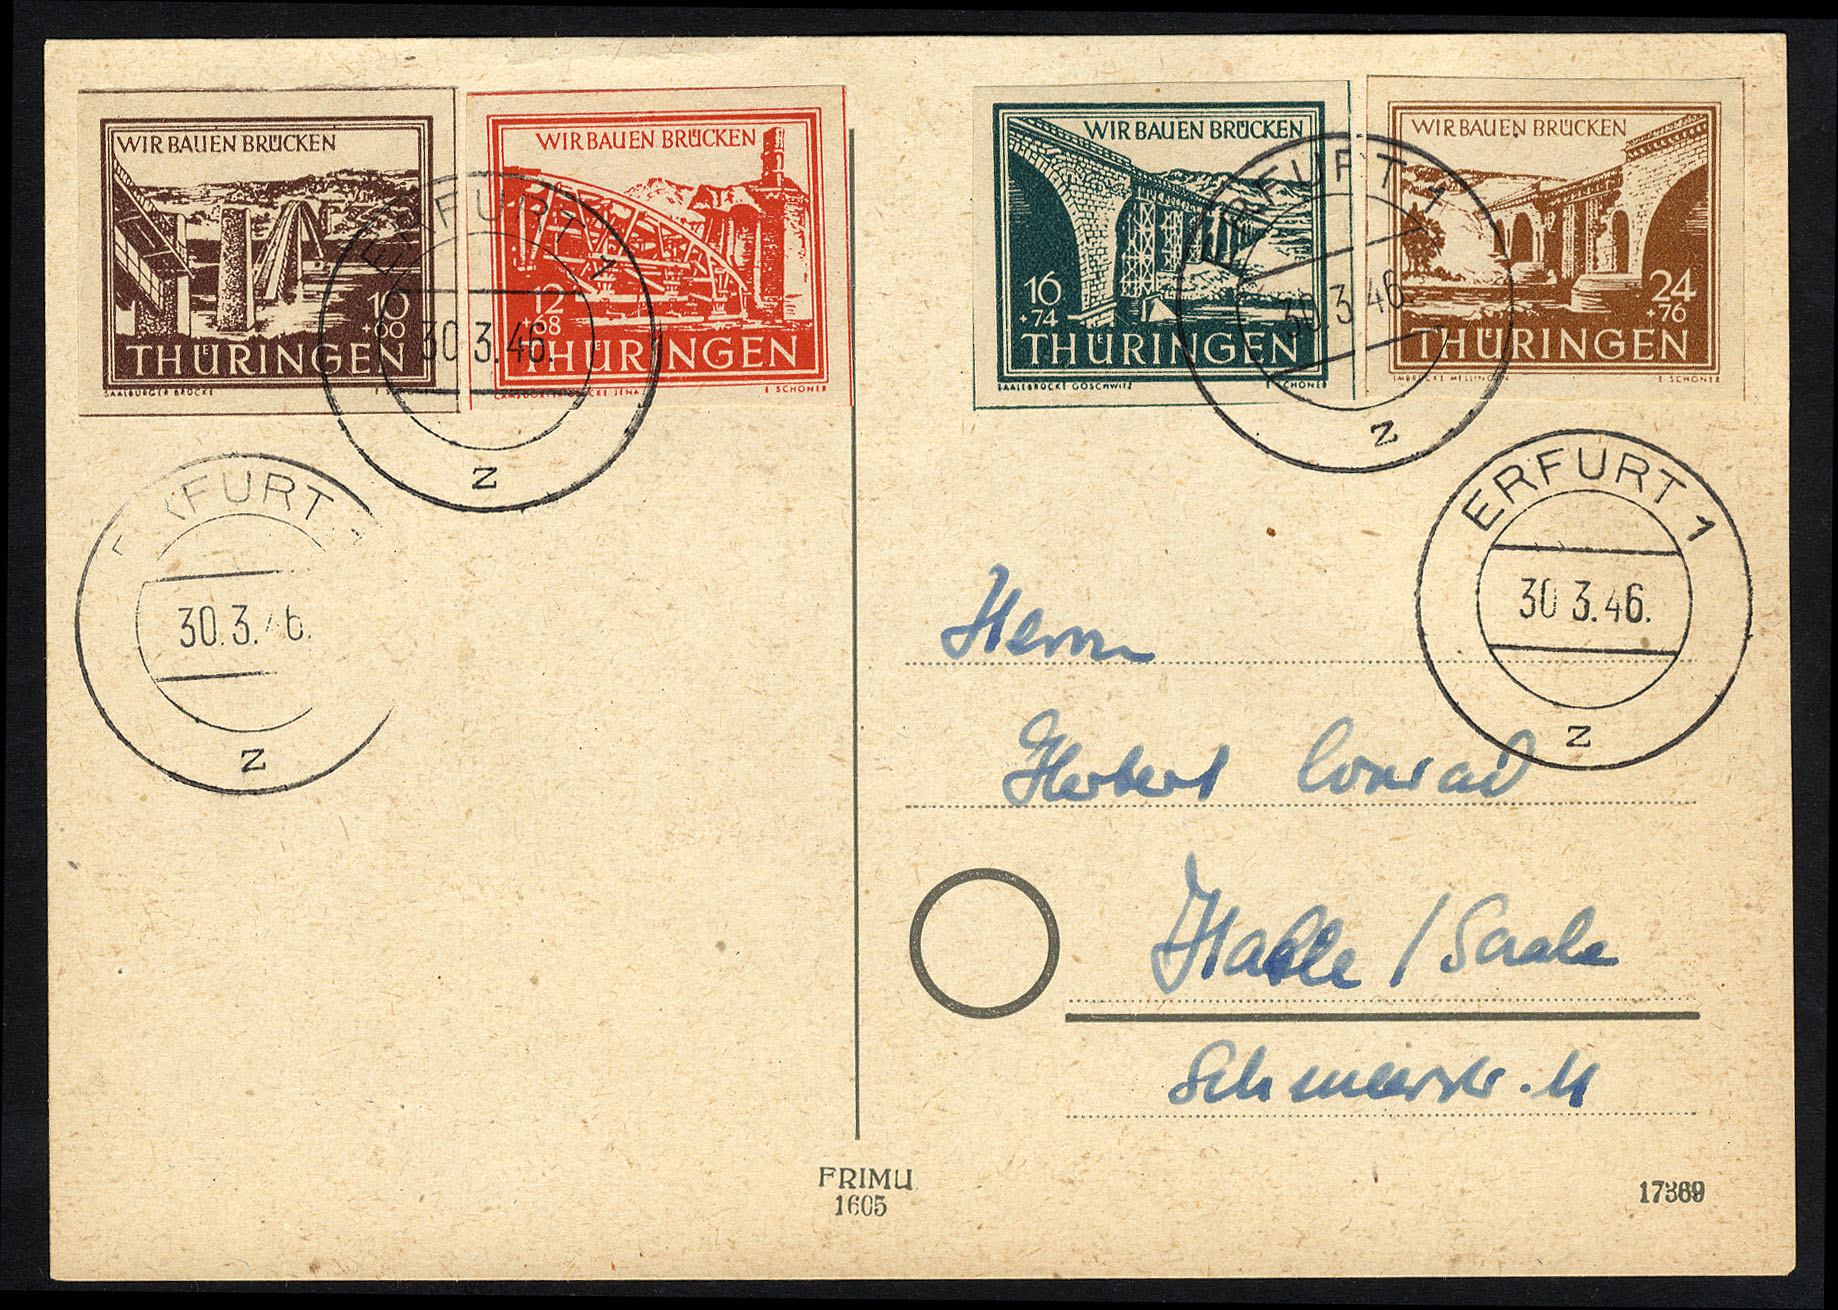 WIR BAUEN BRÜCKEN
10
+60
THÜRINGEN
SAALBURGER BRÜCKE
WIR BAUEN BRÜCKEN
12
+68
THÜRINGEN
CAMSDORFER BRÜCKE JENA
E SCHÖNER
WIR BAUEN BRÜCKEN
16
+74
THÜRINGEN
SAALEBRÜCKE GÖSCHWITZ
E SCHÖNER
WIR BAUEN BRÜCKEN
24
+76
THÜRINGEN
IMBRÜCKE MELLINGEN
E SCHÖNER
ERFURT 1
30.3.46.
z
ERFURT 1
30.3.46.
z
ERFURT 1
30.3.46.
z
ERFURT 1
30.3.46.
z
Herrn
Herbert Conrad
Halle / Saale
Schmeerstr. 11
FRIMU
1605
17369